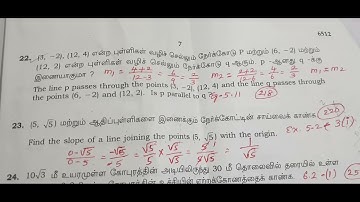 7
6512
22. (3, −2), (12, 4) என்ற புள்ளிகள் வழிச் செல்லும் நேர்க்கோடு P மற்றும் (6, −2) மற்றும்
(12, 2) என்ற புள்ளிகள் வழிச் செல்லும் நேர்க்கோடு q ஆகும். p -ஆனது q -க்கு
இணையாகுமா ? m₁ = 4+2/12-3 = 6/9 = 2/3 m₂ = 2+2/12-6 = 4/6 = 2/3 m₁=m₂
The line p passes through the points (3, −2), (12, 4) and the line q passes through
the points (6, −2) and (12, 2). Is p parallel to q 5.11 218
23. (5, √5) மற்றும் ஆதிப்புள்ளிகளை இணைக்கும் நேர்கோட்டின் சாய்வைக் காண்க. 226
Ex. 5.2 3(i)
Find the slope of a line joining the points (5, √5) with the origin.
0-√5/0-5 = -√5/-5 = √5/5 × √5/√5 = 5/5√5 = 1/√5
24. 10√3 மீ உயரமுள்ள கோபுரத்தின் அடியிலிருந்து 30 மீ தொலைவில் தரையில் உள்ள
உச்சியின் ஏற்றக்கோணத்தைக் காண்க. 6.2 -(1) 25